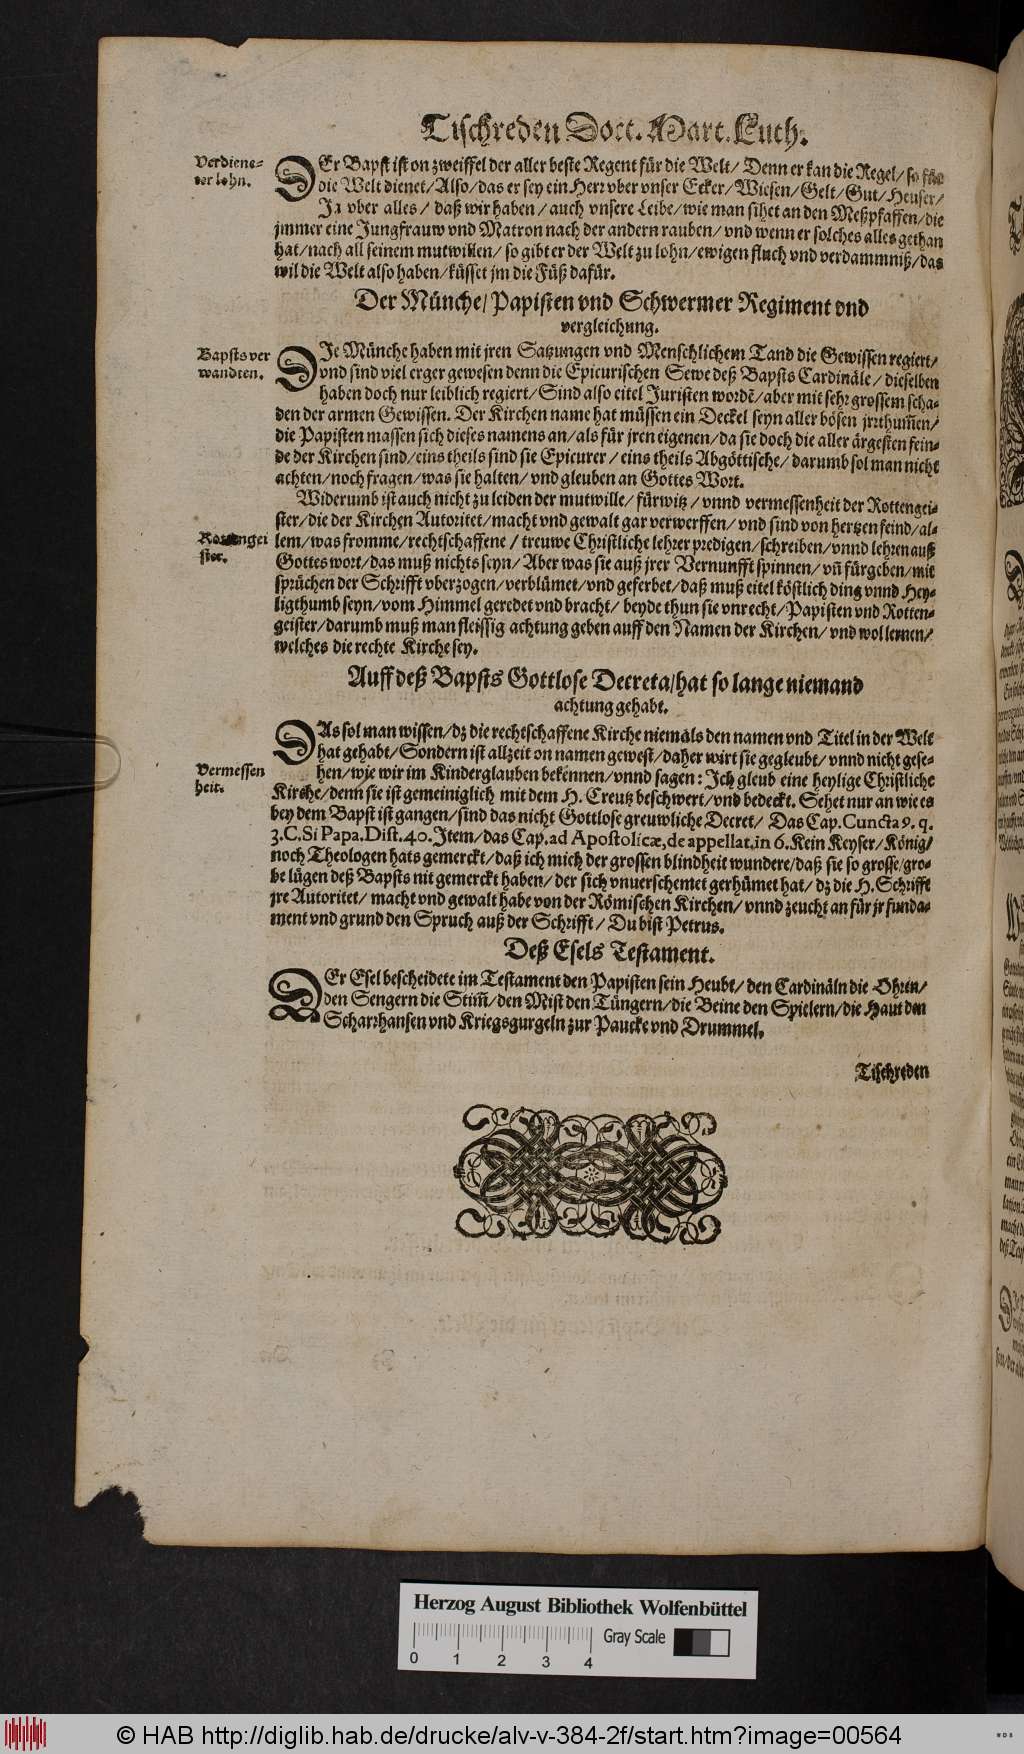 Tischreden Doct. Mart. Luth.
Verdiene-
ter lohn.
DEr Bapst ist on zweiffel der aller beste Regent für die Welt/ Denn er kan die Regel/ so für
die Welt dienet/ Also/ das er sey ein Herr vber vnser Ecker/ Wiesen/ Gelt/ Gut/ Heuser/
Ja vber alles/ daß wir haben/ auch vnsere Leibe/ wie man sihet an den Meßpfaffen/ die
jmmer eine Jungfrauw vnd Matron nach der andern rauben/ vnd wenn er solches alles gethan
hat/ nach all seinem mutwillen/ so gibt er der Welt zu lohn/ ewigen fluch vnd verdammniß/ das
wil die Welt also haben/ küsset jm die Füß dafür.
Der Münche/ Papisten vnd Schwermer Regiment vnd
vergleichung.
Bapsts ver
wandten.
DJe Münche haben mit jren Satzungen vnd Menschlichem Tand die Gewissen regiert/
vnd sind viel erger gewesen denn die Epicurischen Sewe deß Bapsts Cardinäle/ dieselben
haben doch nur leiblich regiert/ Sind also eitel Juristen wordē/ aber mit sehr grossem scha-
den der armen Gewissen. Der Kirchen name hat müssen ein Deckel seyn aller bösen jrrthum̄en/
die Papisten massen sich dieses namens an/ als für jren eigenen/ da sie doch die aller ärgesten fein-
de der Kirchen sind/ eins theils sind sie Epicurer/ eins theils Abgöttische/ darumb sol man nicht
achten/ noch fragen/ was sie halten/ vnd gleuben an Gottes Wort.
Widerumb ist auch nicht zu leiden der mutwille/ fürwitz/ vnnd vermessenheit der Rottengei-
ster/ die der Kirchen Autoritet/ macht vnd gewalt gar verwerffen/ vnd sind von hertzen feind/ al-
Rottengei
ster.
lem/ was fromme/ rechtschaffene/ treuwe Christliche lehrer predigen/ schreiben/ vnnd lehren auß
Gottes wort/ das muß nichts seyn/ Aber was sie auß jrer Vernunfft spinnen/ vn̄ fürgeben/ mit
sprüchen der Schrifft vberzogen/ verblümet/ vnd geferbet/ daß muß eitel köstlich ding vnnd Hey-
ligthumb seyn/ vom Himmel geredet vnd bracht/ beyde thun sie vnrecht/ Papisten vnd Rotten-
geister/ darumb muß man fleissig achtung geben auff den Namen der Kirchen/ vnd wol lernen/
welches die rechte Kirche sey.
Auff deß Bapsts Gottlose Decreta/ hat so lange niemand
achtung gehabt.
DAs sol man wissen/ dz die rechtschaffene Kirche niemals den namen vnd Titel in der Welt
hat gehabt/ Sondern ist allzeit on namen gewest/ daher wirt sie gegleubt/ vnnd nicht gese-
Vermessen
heit.
hen/ wie wir im Kinderglauben bekennen/ vnnd sagen: Jch gleub eine heylige Christliche
Kirche/ denn sie ist gemeiniglich mit dem H. Creutz beschwert/ vnd bedeckt. Sehet nur an wie es
bey dem Bapst ist gangen/ sind das nicht Gottlose greuwliche Decret/ Das Cap. Cuncta 9. q.
3. C. Si Papa. Dist. 40. Item/ das Cap. ad Apostolicæ, de appellat. in 6. Kein Keyser/ König/
noch Theologen hats gemerckt/ daß ich mich der grossen blindheit wundere/ daß sie so grosse/ gro-
be lügen deß Bapsts nit gemerckt haben/ der sich vnuerschemet gerhümet hat/ dz die H. Schrifft
jre Autoritet/ macht vnd gewalt habe von der Römischen Kirchen/ vnnd zeucht an für jr funda-
ment vnd grund den Spruch auß der Schrifft/ Du bist Petrus.
Deß Esels Testament.
DEr Esel bescheidete im Testament den Papisten sein Heubt/ den Cardinäln die Ohren/
den Sengern die Stim̄/ den Mist den Tüngern/ die Beine den Spielern/ die Haut den
Scharrhansen vnd Kriegsgurgeln zur Paucke vnd Drummel.
Tischreden
Herzog August Bibliothek Wolfenbüttel
Gray Scale
0 1 2 3 4
© HAB http://diglib.hab.de/drucke/alv-v-384-2f/start.htm?image=00564